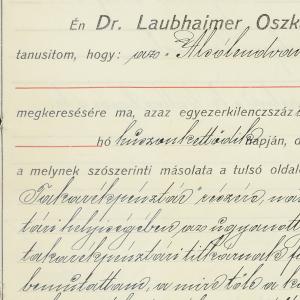 Én Dr. Laubhaimer Oszká
tanusitom, hogy: az Alsólendvai
megkeresésére ma, azaz egyezerkilenczszáz
hó huszonkettődik napján, d
a melynek szószerinti másolata a tulsó oldalo
Takarékpénztár részére, más
tári helyiségében az ugyanott
takarékpénztári titkárnak f
bemutattam, a mire tőle a k